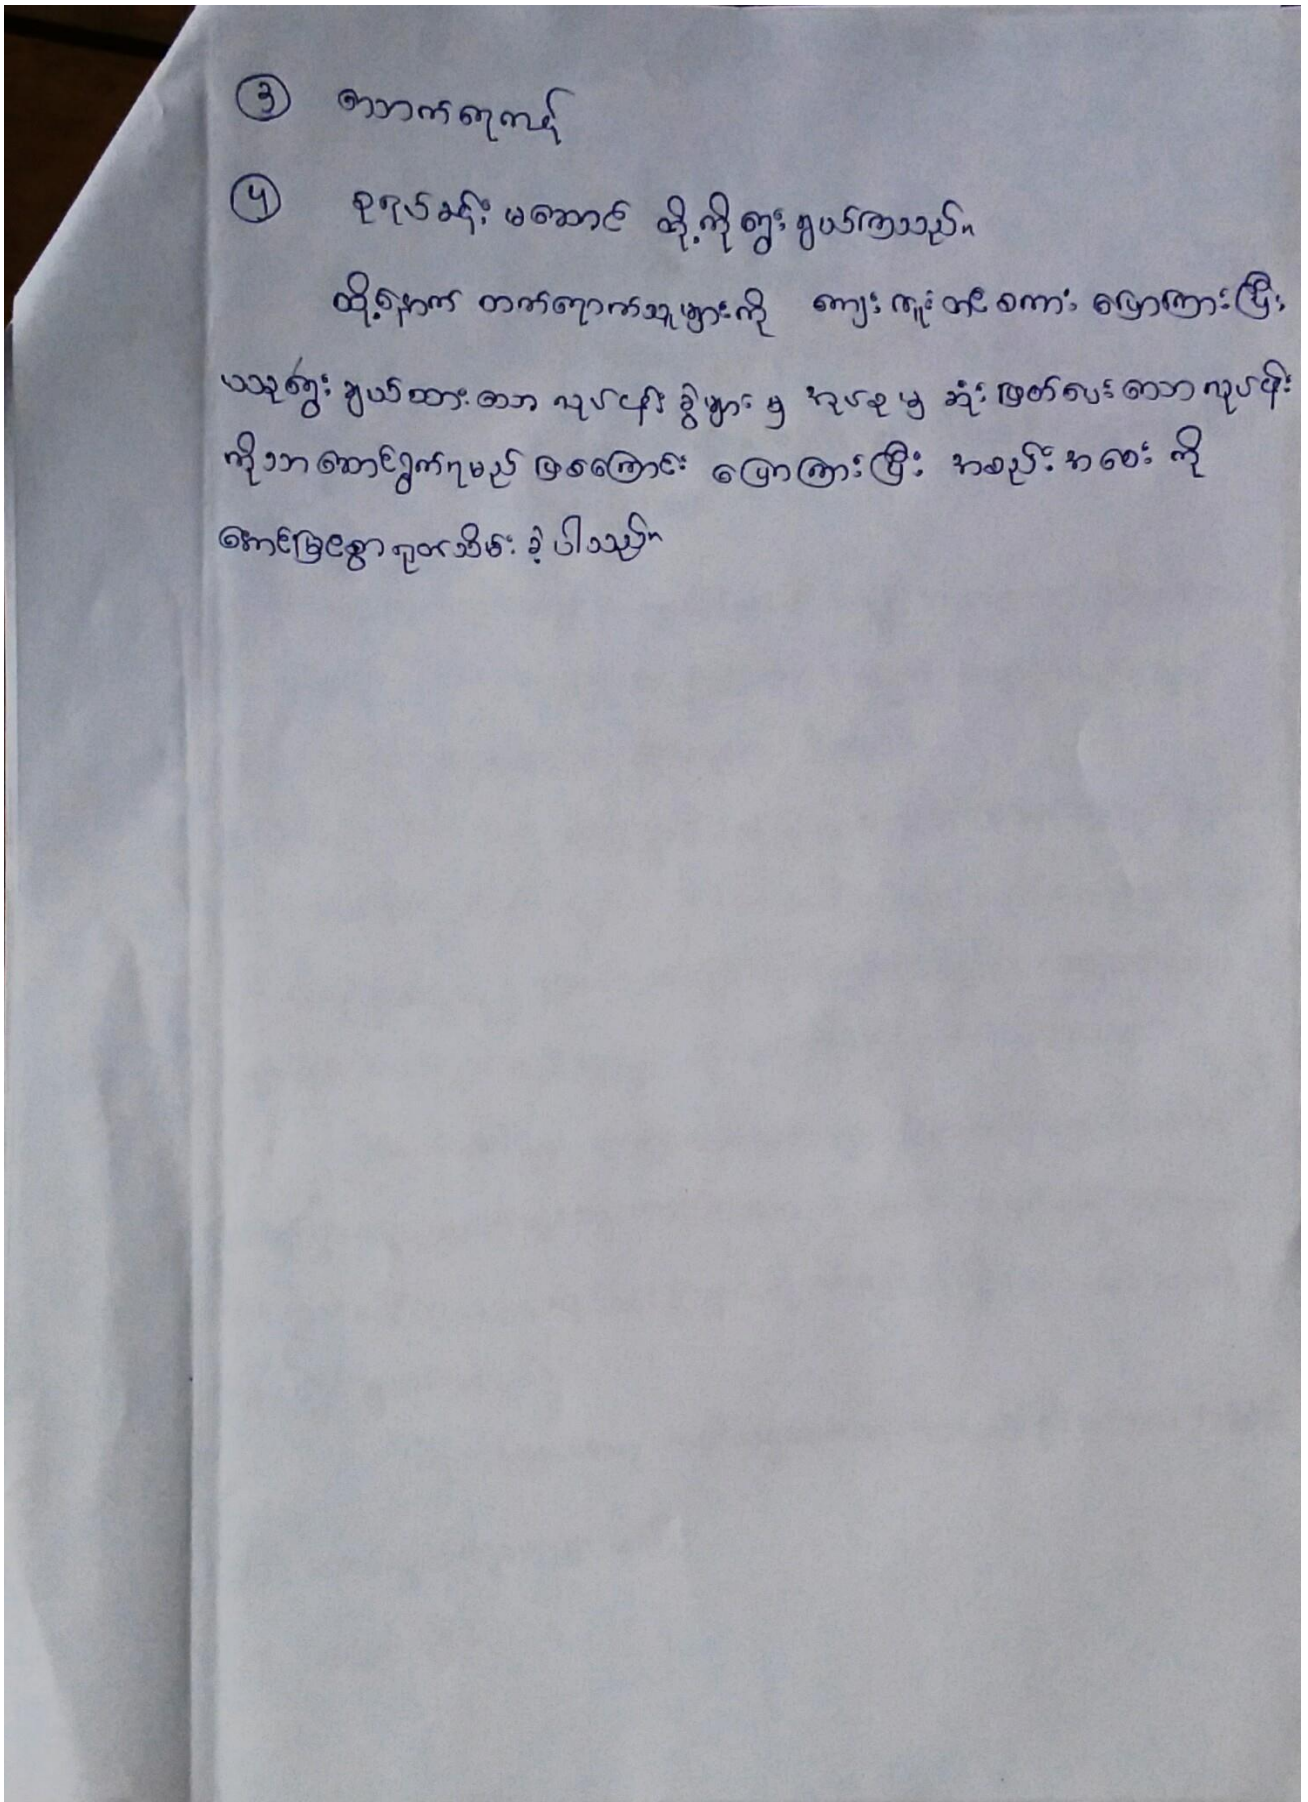 ③ သောက်ရေကန်
④ စုရပ်ခန်းမဆောင် ထို့ကိုရွေးချယ်ကြသည်။
ထို့နောက် တက်ရောက်သူများကို ကျေးဇူးတင်စကား ပြောကြားပြီး
ယခုရွေးချယ်ထားသော လုပ်ငန်းခွဲများမှ အုပ်စုမှ ဆုံးဖြတ်ပေးသော လုပ်ငန်း
ကိုသာဆောင်ရွက်ရမည် ဖြစ်ကြောင်း ပြောကြားပြီး အစည်းအဝေးကို
အောင်မြင်စွာရုတ်သိမ်းခဲ့ပါသည်။